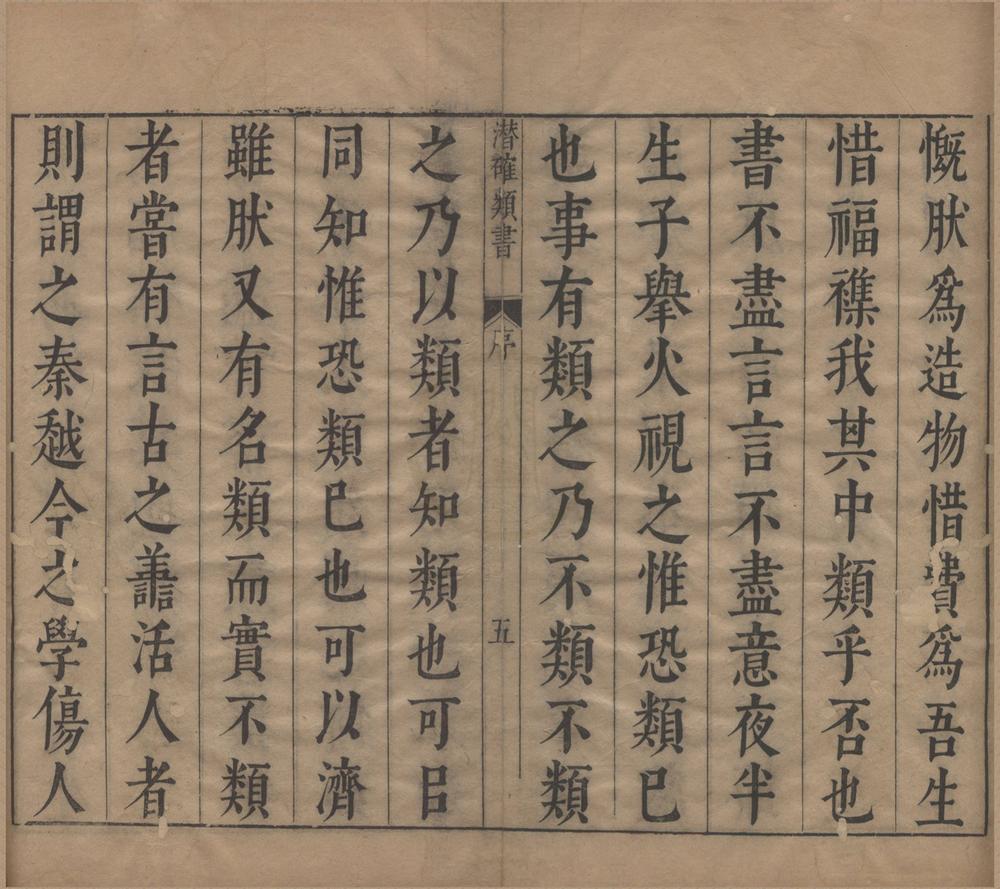 慨肰爲造物惜費爲吾生
惜福襍我其中類乎否也
書不盡言言不盡意夜半
生子擧火視之惟恐類已
也事有類之乃不類不類
潜確類書 序 五
之乃以類者知類也可㠯
同知惟恐類已也可以濟
雖肰又有名類而實不類
者嘗有言古之譱活人者
則謂之秦越今之學傷人